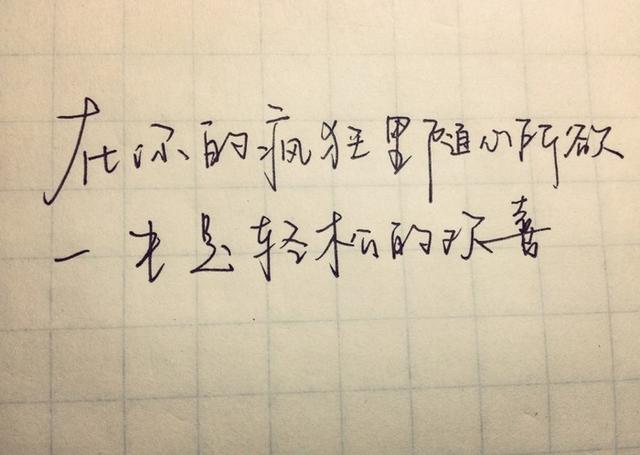 在你的疯狂里随心所欲
一是轻松的欢喜